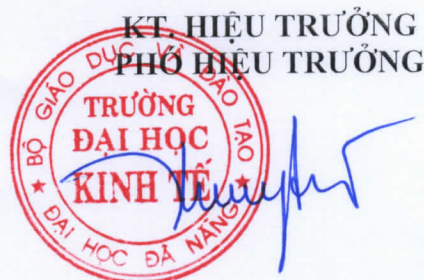 KT. HIỆU TRƯỞNG
PHÓ HIỆU TRƯỞNG
BỘ GIÁO DỤC VÀ ĐÀO TẠO
TRƯỜNG
ĐẠI HỌC
KINH TẾ
★ ĐẠI HỌC ĐÀ NẴNG ★